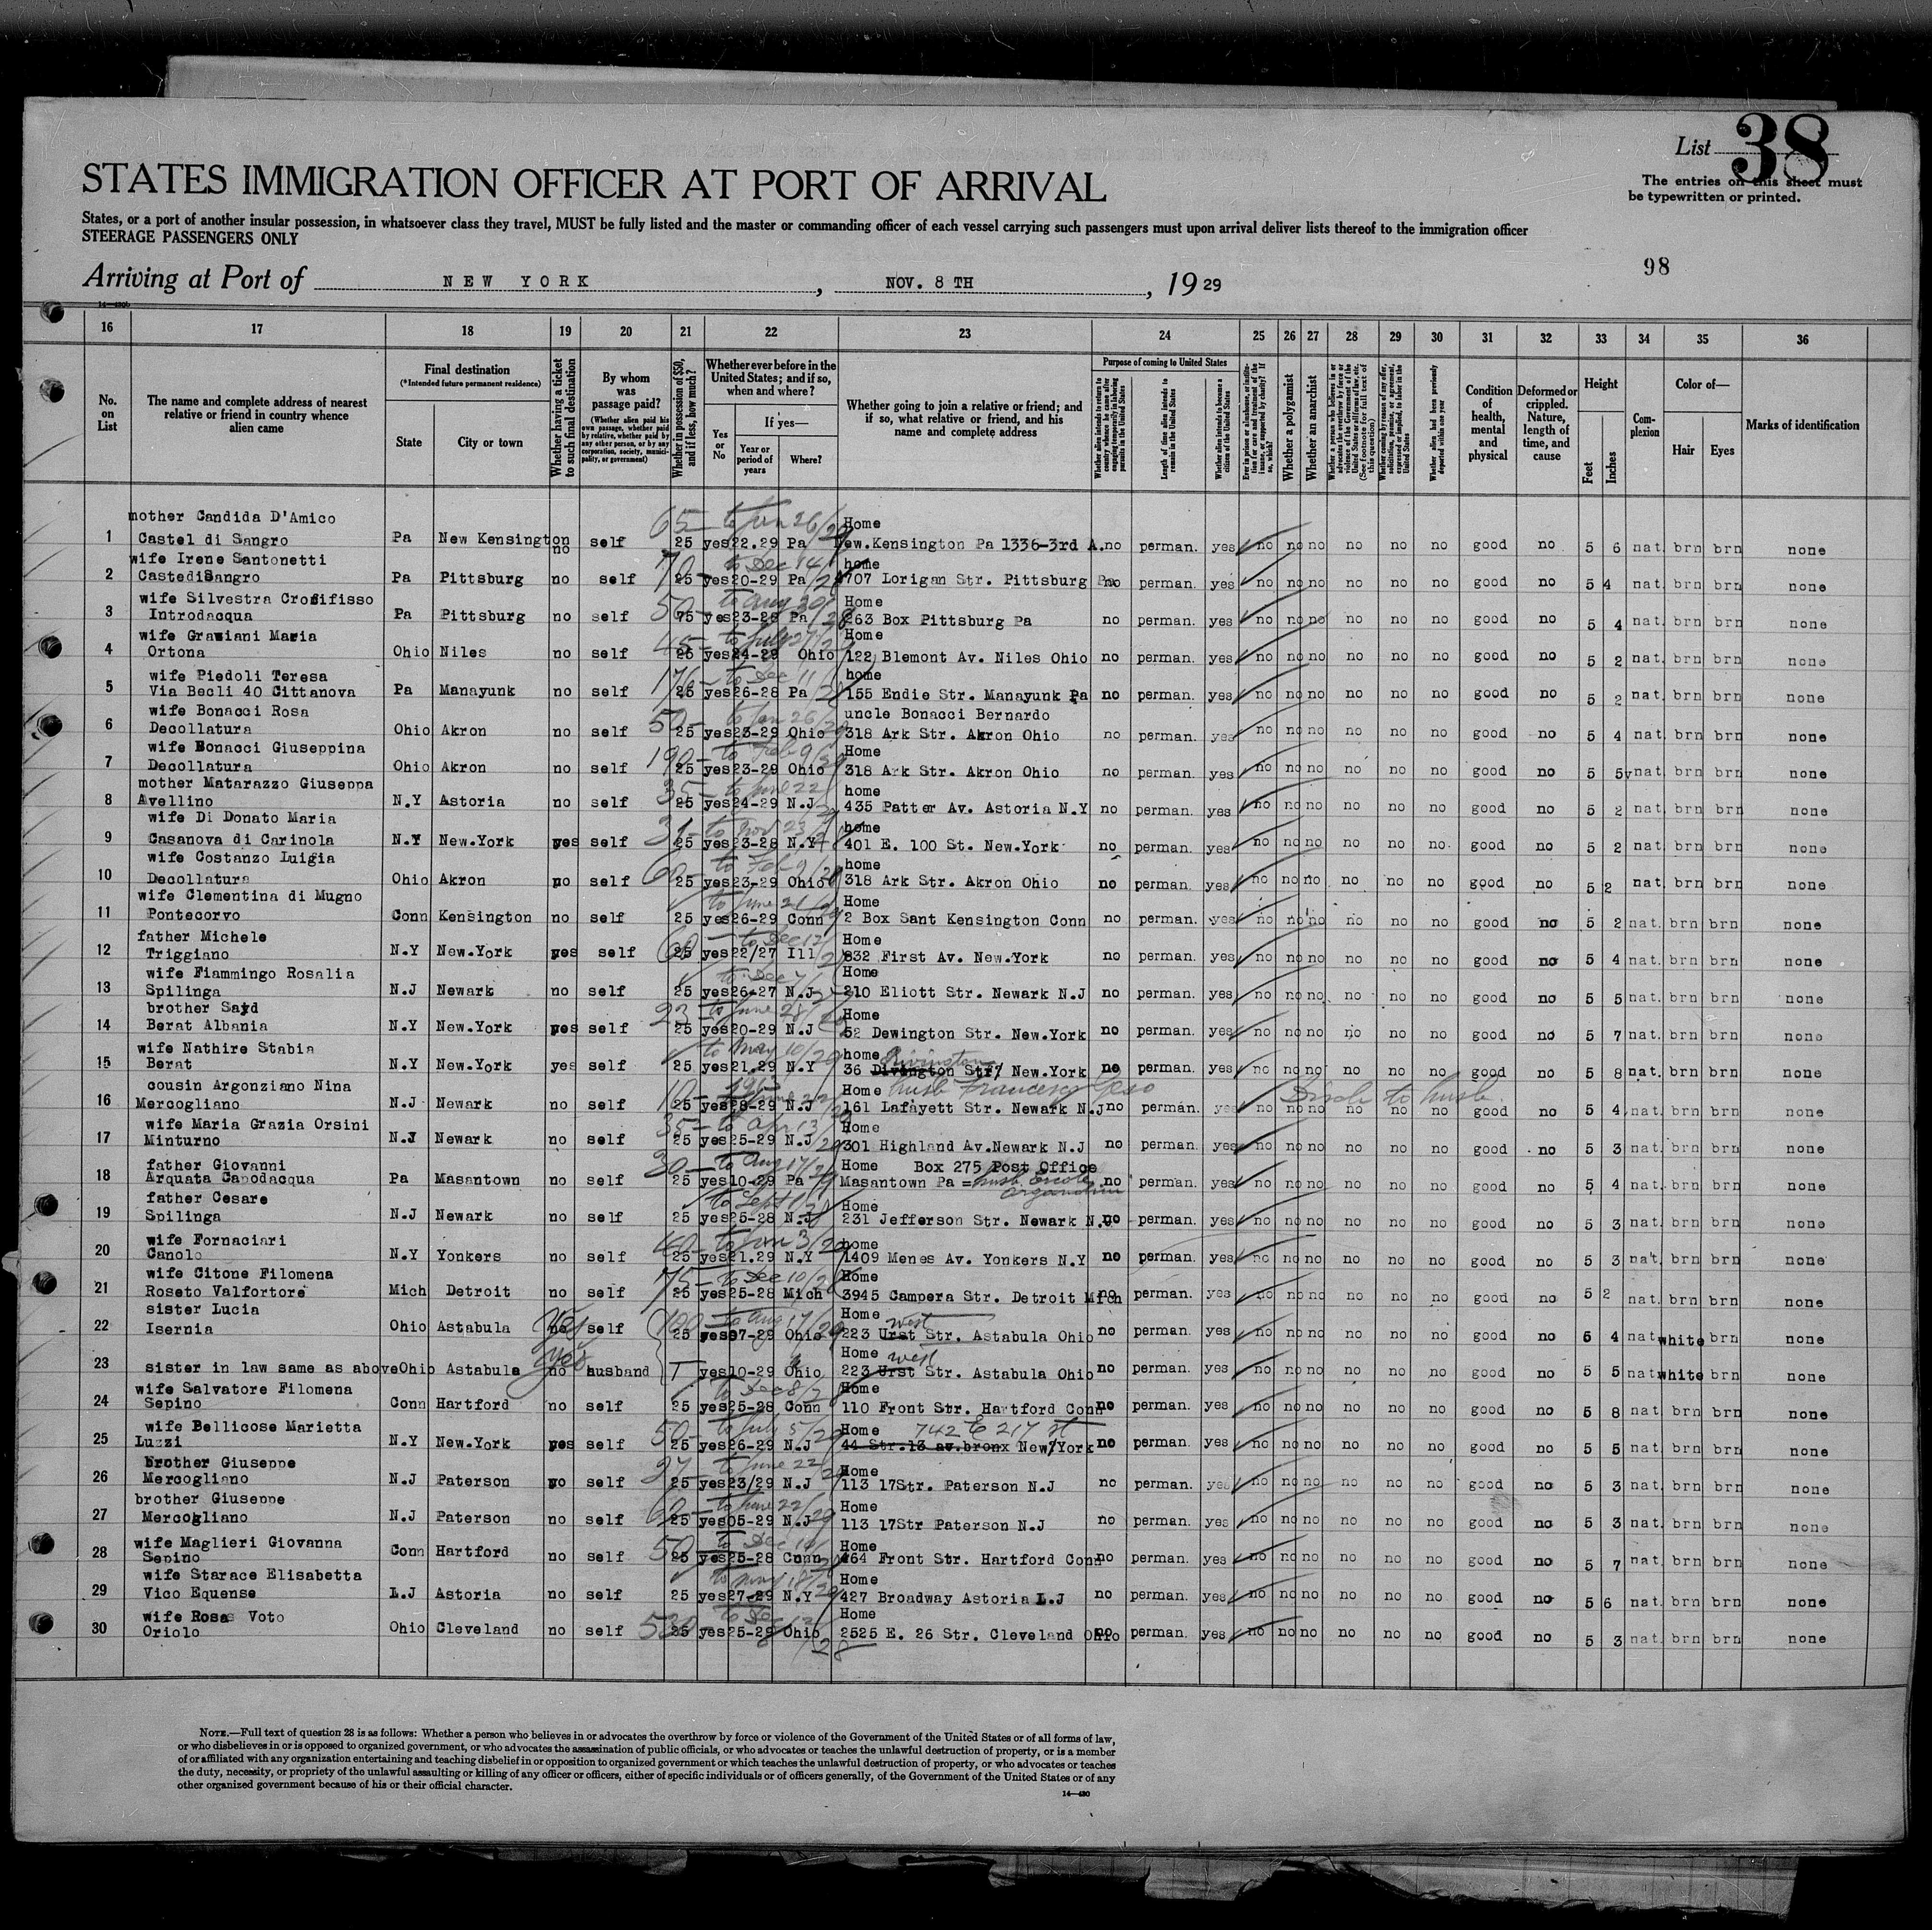 List 38
STATES IMMIGRATION OFFICER AT PORT OF ARRIVAL
The entries on this sheet must
be typewritten or printed.
States, or a port of another insular possession, in whatsoever class they travel, MUST be fully listed and the master or commanding officer of each vessel carrying such passengers must upon arrival deliver lists thereof to the immigration officer
STEERAGE PASSENGERS ONLY
98
Arriving at Port of NEW YORK, NOV. 8 TH, 19 29
16 17 18 19 20 21 22 23 24 25 26 27 28 29 30 31 32 33 34 35 36
No. on List
The name and complete address of nearest relative or friend in country whence alien came
Final destination
(*Intended future permanent residence)
State
City or town
Whether having a ticket to such final destination
By whom was passage paid?
(Whether alien paid his own passage, whether paid by relative, whether paid by any other person, or by any corporation, society, municipality, or government)
Whether in possession of $50, and if less, how much?
Whether ever before in the United States; and if so, when and where?
Yes or No
If yes—
Year or period of years
Where?
Whether going to join a relative or friend; and if so, what relative or friend, and his name and complete address
Purpose of coming to United States
Length of time alien intends to remain in the United States
Whether alien intends to become a citizen of the United States
Whether a polygamist
Whether an anarchist
Condition of health, mental and physical
Deformed or crippled. Nature, length of time, and cause
Height
Feet
Inches
Complexion
Color of—
Hair
Eyes
Marks of identification
mother Candida D'Amico Home
1 Castel di Sangro Pa New Kensington no self 25 yes 22.29 Pa New.Kensington Pa 1336-3rd A. no perman. yes no no no no no no good no 5 6 nat. brn brn none
wife Irene Santonetti home
2 CastediSangro Pa Pittsburg no self 25 yes 20-29 Pa 4707 Lorigan Str. Pittsburg Pa no perman. yes no no no no no no good no 5 4 nat. brn brn none
wife Silvestra Crosifisso Home
3 Introdacqua Pa Pittsburg no self 75 yes 23-28 Pa 263 Box Pittsburg Pa no perman. yes no no no no no no good no 5 4 nat. brn brn none
wife Grawiani Maria Home
4 Ortona Ohio Niles no self 25 yes 24-29 Ohio 122 Blemont Av. Niles Ohio no perman. yes no no no no no no good no 5 2 nat. brn brn none
wife Piedoli Teresa home
5 Via Becli 40 Cittanova Pa Manayunk no self 25 yes 26-28 Pa 155 Endie Str. Manayunk Pa no perman. yes no no no no no no good no 5 2 nat. brn brn none
wife Bonacci Rosa uncle Bonacci Bernardo
6 Decollatura Ohio Akron no self 25 yes 23-29 Ohio 318 Ark Str. Akron Ohio no perman. yes no no no no no no good no 5 4 nat. brn brn none
wife Bonacci Giuseppina Home
7 Decollatura Ohio Akron no self 25 yes 23-29 Ohio 318 Ark Str. Akron Ohio no perman. yes no no no no no no good no 5 5 nat. brn brn none
mother Matarazzo Giuseppa home
8 Avellino N.Y Astoria no self 25 yes 24-29 N.J 435 Patter Av. Astoria N.Y no perman. yes no no no no no no good no 5 2 nat. brn brn none
wife Di Donato Maria home
9 Casanova di Carinola N.Y New.York yes self 25 yes 23-28 N.Y 401 E. 100 St. New.York no perman. yes no no no no no no good no 5 2 nat. brn brn none
wife Costanzo Luigia home
10 Decollatura Ohio Akron no self 25 yes 23-29 Ohio 318 Ark Str. Akron Ohio no perman. yes no no no no no no good no 5 2 nat. brn brn none
wife Clementina di Mugno Home
11 Pontecorvo Conn Kensington no self 25 yes 26-29 Conn 2 Box Sant Kensington Conn no perman. yes no no no no no no good no 5 2 nat. brn brn none
father Michele Home
12 Triggiano N.Y New.York yes self 25 yes 22/27 Ill 832 First Av. New.York no perman. yes no no no no no no good no 5 4 nat. brn brn none
wife Fiammingo Rosalia Home
13 Spilinga N.J Newark no self 25 yes 26-27 N.J 210 Eliott Str. Newark N.J no perman. yes no no no no no no good no 5 5 nat. brn brn none
brother Sayd Home
14 Berat Albania N.Y New.York yes self 25 yes 20-29 N.J 52 Dewington Str. New.York no perman. yes no no no no no no good no 5 7 nat. brn brn none
wife Nathire Stabia home Rivington
15 Berat N.Y New.York yes self 25 yes 21.29 N.Y 36 Divington Str/ New.York no perman. yes no no no no no no good no 5 8 nat. brn brn none
cousin Argonziano Nina Home husb Francesco
16 Mercogliano N.J Newark no self 25 yes 28-29 N.J 161 Lafayett Str. Newark N.J no perman. yes no no no no no no good no 5 4 nat. brn brn none
wife Maria Grazia Orsini Home
17 Minturno N.J Newark no self 25 yes 25-29 N.J 301 Highland Av.Newark N.J no perman. yes no no no no no no good no 5 3 nat. brn brn none
father Giovanni Home Box 275 Post Office
18 Arquata Capodacqua Pa Masantown no self 25 yes 10-29 Pa Masantown Pa = no perman. yes no no no no no no good no 5 4 nat. brn brn none
father Cesare Home
19 Spilinga N.J Newark no self 25 yes 25-28 N.J 231 Jefferson Str. Newark N.J no perman. yes no no no no no no good no 5 3 nat. brn brn none
wife Fornaciari home
20 Canolo N.Y Yonkers no self 25 yes 21.29 N.Y 1409 Menes Av. Yonkers N.Y no perman. yes no no no no no no good no 5 3 nat. brn brn none
wife Citone Filomena Home
21 Roseto Valfortore Mich Detroit no self 25 yes 25-28 Mich 3945 Campera Str. Detroit Mich no perman. yes no no no no no no good no 5 2 nat. brn brn none
sister Lucia Home west
22 Isernia Ohio Astabula no yes self 25 yes 07-29 Ohio 223 Urst Str. Astabula Ohio no perman. yes no no no no no no good no 5 4 nat white brn none
Home west
23 sister in law same as above Ohio Astabula no yes husband yes 10-29 Ohio 223 Urst Str. Astabula Ohio no perman. yes no no no no no no good no 5 5 nat white brn none
wife Salvatore Filomena Home
24 Sepino Conn Hartford no self 25 yes 25-28 Conn 110 Front Str. Hartford Conn no perman. yes no no no no no no good no 5 8 nat. brn brn none
wife Bellicose Marietta Home 742 E 217 st
25 Luzzi N.Y New.York yes self 25 yes 26-29 N.J 44 Str.13 av.bronx New/York no perman. yes no no no no no no good no 5 5 nat. brn brn none
brother Giuseppe Home
26 Mercogliano N.J Paterson no self 25 yes 23/29 N.J 113 17Str. Paterson N.J no perman. yes no no no no no no good no 5 3 nat. brn brn none
brother Giuseppe Home
27 Mercogliano N.J Paterson no self 25 yes 05-29 N.J 113 17Str Paterson N.J no perman. yes no no no no no no good no 5 3 nat. brn brn none
wife Maglieri Giovanna Home
28 Sepino Conn Hartford no self 25 yes 25-28 Conn 464 Front Str. Hartford Conn no perman. yes no no no no no no good no 5 7 nat. brn brn none
wife Starace Elisabetta Home
29 Vico Equense L.J Astoria no self 25 yes 27-29 N.Y 427 Broadway Astoria L.J no perman. yes no no no no no no good no 5 6 nat. brn brn none
wife Rosa Voto Home
30 Oriolo Ohio Cleveland no self 25 yes 25-29 Ohio 2525 E. 26 Str. Cleveland Ohio no perman. yes no no no no no no good no 5 3 nat. brn brn none
NOTE.—Full text of question 28 is as follows: Whether a person who believes in or advocates the overthrow by force or violence of the Government of the United States or of all forms of law,
or who disbelieves in or is opposed to organized government, or who advocates the assassination of public officials, or who advocates or teaches the unlawful destruction of property, or is a member
of or affiliated with any organization entertaining and teaching disbelief in or opposition to organized government or which teaches the unlawful destruction of property, or who advocates or teaches
the duty, necessity, or propriety of the unlawful assaulting or killing of any officer or officers, either of specific individuals or of officers generally, of the Government of the United States or of any
other organized government because of his or their official character.
14—430